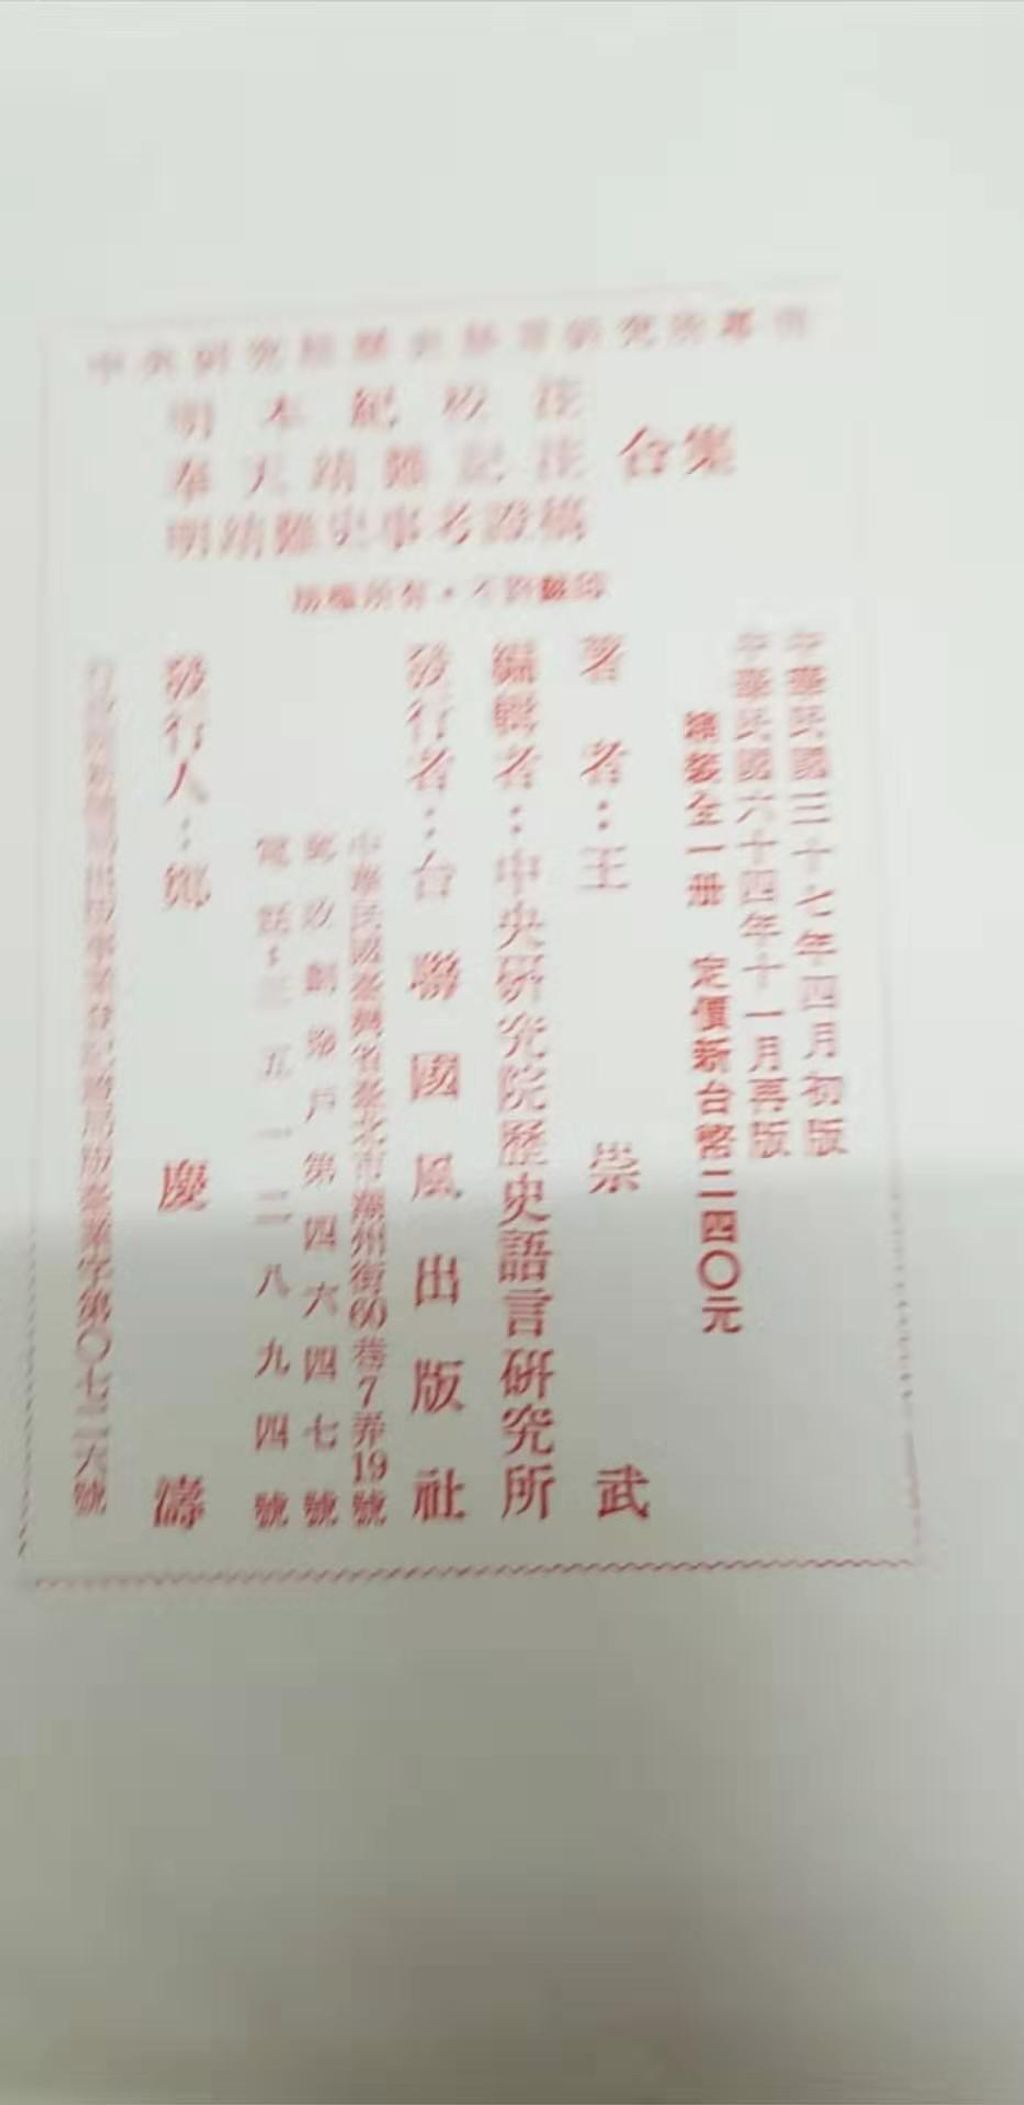 中央研究院歷史語言研究所專刊
明本紀校注
奉天靖難記注
明靖難史事考證稿
合集
版權所有・不許翻印
中華民國三十七年四月初版
中華民國六十四年十一月再版
精裝全一册 定價新台幣二四〇元
著者：王崇武
編輯者：中央研究院歷史語言研究所
發行者：台聯國風出版社
中華民國臺灣省臺北市潮州街60巷7弄19號
郵政劃撥戶第四六四七號
電話：三五一二八九四號
發行人：鄭慶濤
出版事業登記證局版臺業字第〇七二六號